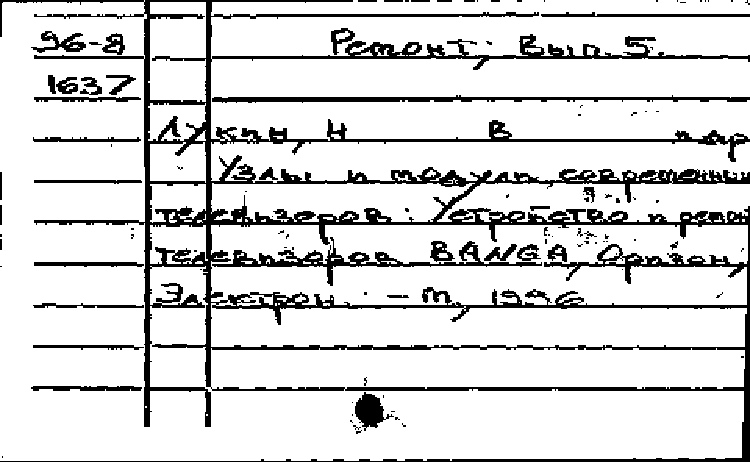 96-8 Ремонт; Вып. 5.
1637
Лукин, Н В и др
Узлы и модули современных
телевизоров: Устройство и ремонт
телевизоров BANGA, Оризон,
Электрон. - М, 1996